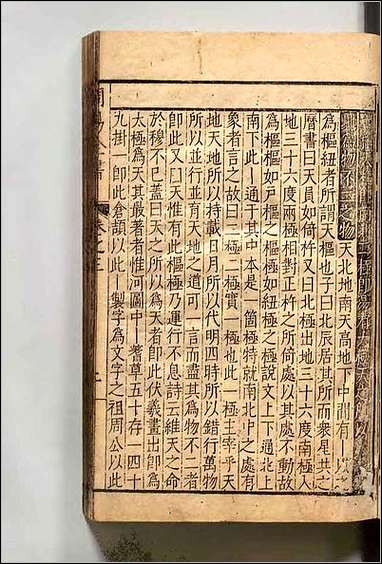 為物不貳之物天北地南天高地下中間有
為樞紐者所謂天樞也子曰北辰居其所而衆星共之
曆書曰天員如倚杵又曰北極出地三十六度南極入
地三十六度兩極相對正杵之所倚處以其處不動故
為樞樞如戶樞之樞極如紐極之極說文上下通北上
南下此丨通于其中本是一箇極特就南北中之處有
象者言之故曰二極二極實一極也此一極主宰乎天
地天地所以持載日月所以代明四時所以錯行萬物
所以並行並育天地之道可一言而盡其為物不二者
即此又曰天惟有此樞極乃運行不息詩云維天之命
於穆不已蓋曰天之所以為天者即此伏羲畫出即為
太極為天其最著者惟河圖中一蓍草五十存一四十
九掛一即此倉頡以此丨製字為文字之祖周公以此